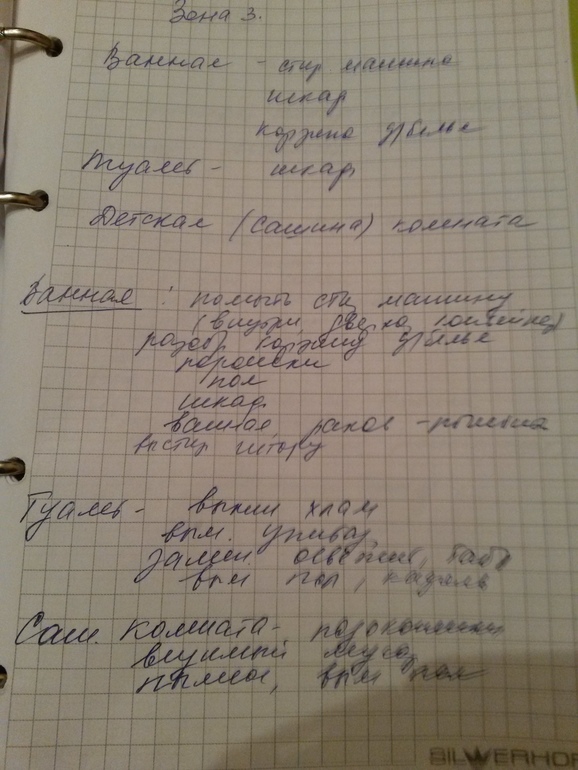 Зона 3.
Ванная - стир машина
шкаф
корзина д/белья
Туалет - шкаф
Детская (Сашина) комната
Ванная : помыть стир машину
(внутри, дверка,
разобр корзину д/белья
порошки
пол
шкаф
ванная раков
выстир штору
Туалет - выкин хлам
вым. унитаз,
замен. освежит,
вым пол, кафель
Саш. комната - подоконники
мусор
вым пол
BILWERHOF